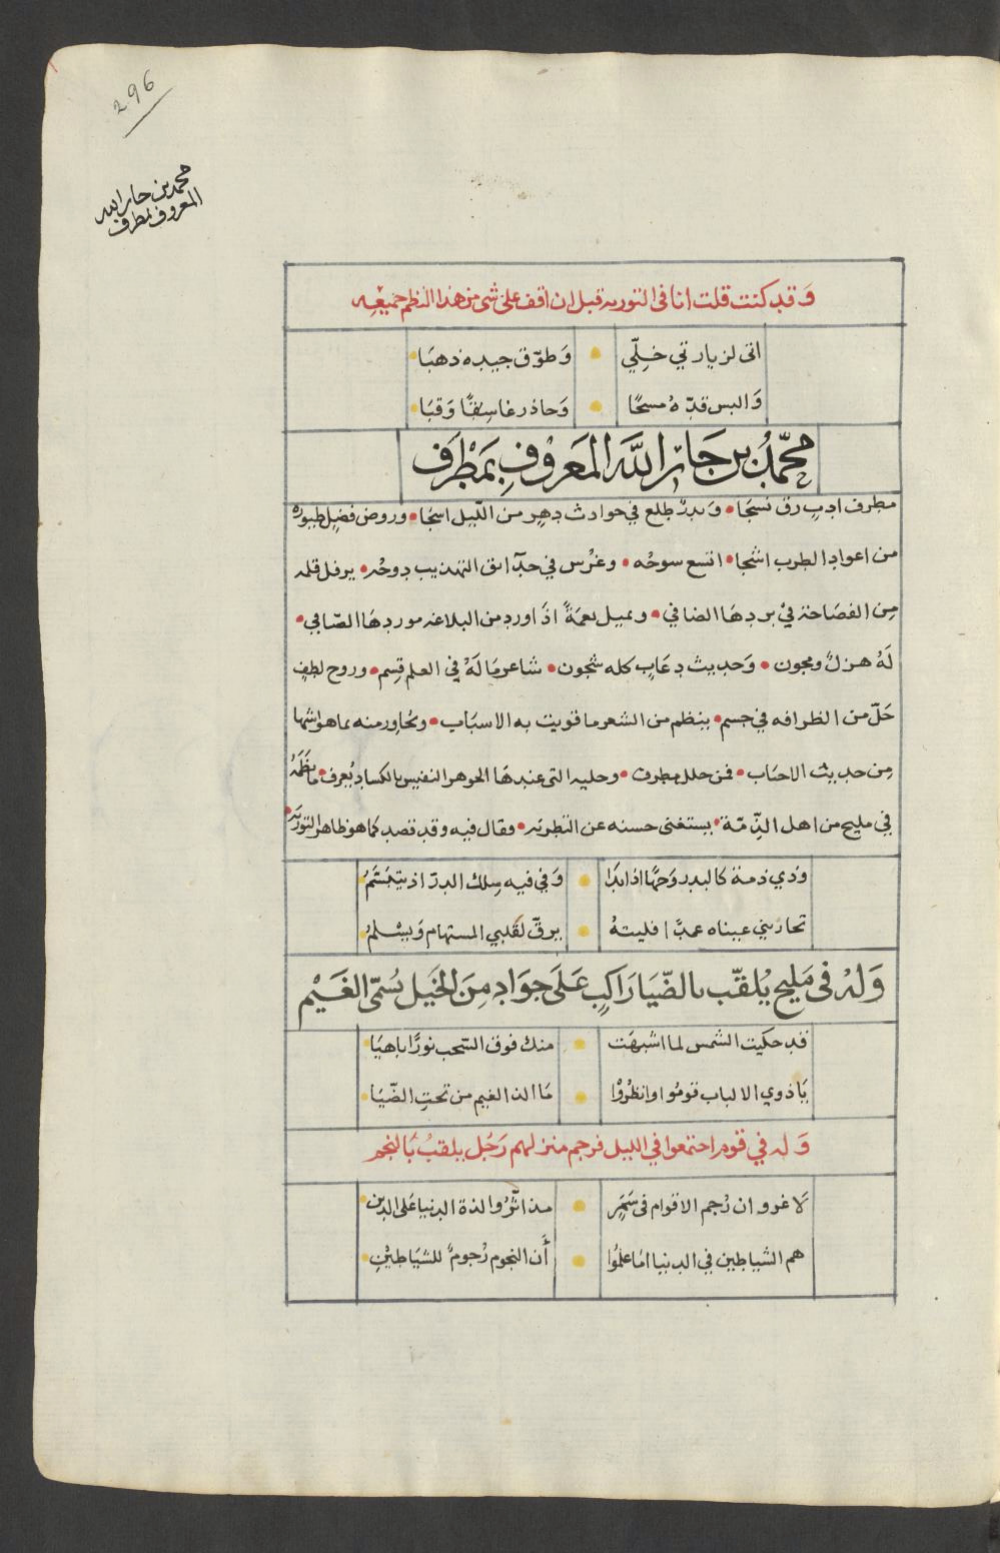 296
محمد بن جار الله
المعروف بمطرف
وَقد كنت قلت انا فى التورية قبل ان اقف على شى من هذا النظم جميعِه
اتى لزيارتي خلّي • وَطوّق جيده ذهبَا
وَالبس قدّهُ مسحًا • وَحاذر غاسِقًا وَقبَا
محمّدُ بن جَارِ اللَّه المَعرُوفِ بمَطْرَف
مطرف ادبٍ رق نسجَا • وَبدرٌ طلع في حوادث دهرٍ من الليل اسجَا • وروض فضلٍ طيورهُ
من اعواد الطرب اشجا • اتسع سوحُه • وغرُس في حدَآئق التهذيب دوحُه • يرفل قلمه
مِن الفصَاحة فيْ بردهَا الضافي • ويميل نعمَةً اذَا ورد من البلاغة موردهَا الصّافي •
لَهُ هزلٌ ومجون • وَحديث دعَابٍ كله شجون • شاعر مَا لَهُ في العلم قِسم • وروح لطفٍ
حَلّ من الظرافه في جسم • بنظم من الشعر ما قويت به الاسبَاب • وتحاور منه بما هو اشها
مِن حديث الاحبَاب • فمن حلله مطرف • وحليه التى عندهَا الجوهر النفيس بالكساد يُعرف • مَا نظَمَهُ
في مليح من اهل الذِّمّة • يستغنى حسنه عن التطرية • وقال فيه وقد قصد كما هو ظاهر التوريَة •
وَذي ذمة كالبدر وَجهًا اذا بدَا • وَفي فيه سِلك الدرّ اذ يتبَسّمُ
تحاربني عيناه عمدًا فليتهُ • يرقّ لقَلبي المستهام وَيُسْلمُ
وَلهُ فى مَليح يُلقّب بالضّيَا رَاكِبٍ عَلَى جوَادٍ مِنَ الخَيل يُسَمّى الغَيْم
قد حكيت الشمس لما اشبهَت • منك فوق السّحب نورًا باهيَا
يَا ذوي الالباب قومُوا وانظرُوْا • مَا الذ الغيم من تحتِ الضّيَا
وَله في قوم اجتمعوا في الليل فرجم منزلهم رَجُل يلقبُ بَالنجم
لَا غرو ان رُجم الاقوام فى سَمَرٍ • مذ اثَّرُوا لذة الدنيا عَلى الدين
هم الشياطين في الدنيا امَا علمُوا • أَن النجوم رُجومٌ للشيَاطيْنِ